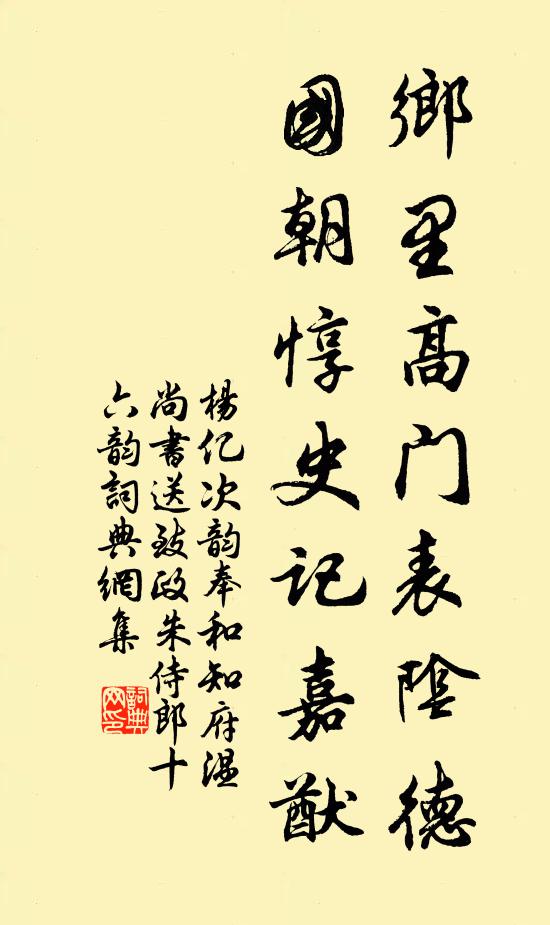 鄉里高门表陰德
國朝惇史记嘉猷
楊亿次韵奉和知府温
尚書送致政朱侍郎十
六韵詞典網集
詞典网印